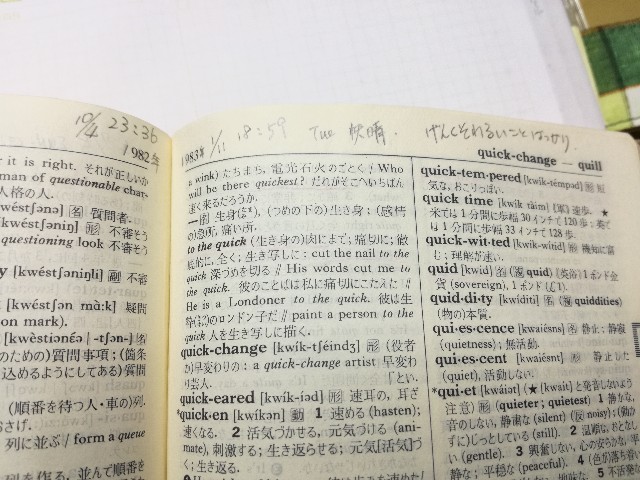 10/4 23:36
1982年
it is right. それが正しいか
man of questionable char-
人格の人.
[kwéstʃənə] 名 質問者.
[kwéstʃəniŋ] 形 不審そう
questioning look 不審そう
[kwéstʃəniŋli] 副 不審
[kwéstʃən mà:k] 疑問
ion mark).
[kwèstiənéə | -tʃən-]
のための)質問事項; (箇条
込めるようにしてある)質問
(順番を待つ人・車の)列.
おさげ.
列に並ぶ / form a queue
列を作る, 並んで順番を
1983年 1/11 18:59 Tue 快晴.
quick-change — quill
a wink) たちまち, 電光石火のごとく // Who
will be there quickest? だれがそこへいちばん
速く来るだろうか.
—名 生身(なまみ), (つめの下の)生き身; (感情
の)急所, 痛い所.
to the quick (生き身の)肉にまで; 痛切に; 徹
底的に, 全く; 生き写しに: cut the nail to the
quick 深づめを切る // His words cut me to
the quick. 彼のことばは私に痛切にこたえた //
He is a Londoner to the quick. 彼は生
粋(きっすい)のロンドン子だ // paint a person to the
quick 人を生き写しに描く.
quick-change [kwík-tʃéindʒ] 形 (役者
が)早変わりの: a quick-change artist 早変わ
り芸人.
quick-eared [kwík-íəd] 形 速耳の, 耳ざ「とい.
*quick·en [kwíkən] 動 1 速める (hasten);
速くなる. 2 活気づかせる, 元気づける (ani-
mate), 刺激する; 生き返らせる; 元気[活気]づ
く; 生き返る.
quick-tem·pered [kwík-témpəd] 形 短
気な, おこりっぽい.
quick time [kwík táim] 〔軍〕速歩. ★
米では 1 分間に歩幅 30 インチで 120 歩; 英で
は 1 分間に歩幅 33 インチで 128 歩.
quick-wit·ted [kwík-wítid] 形 機知に富
む; 理解が速い.
quid [kwid] 名 (複 quid) (英俗) 1 ポンド金
貨 (sovereign), 1 ポンド (£1).
quid·di·ty [kwíditi] 名 (複 quiddities)
(物の)本質.
qui·es·cence [kwaiésns] 名 静止; 静寂
(quietness); 無活動.
qui·es·cent [kwaiésnt] 形 静止した
(quiet), 活動しない.
*qui·et [kwáiət] (★ [kwait] と発音しないよう
注意) 形 (quieter; quietest) 1 静かな,
音のしない, 静粛な (silent) (反 noisy); (動か
ずに)じっとしている (still). 2 温順な, おとなし
い (gentle). 3 興奮しない, 心の安らかな, 平
静な; 平穏な (peaceful). 4 (色が)落ち着い